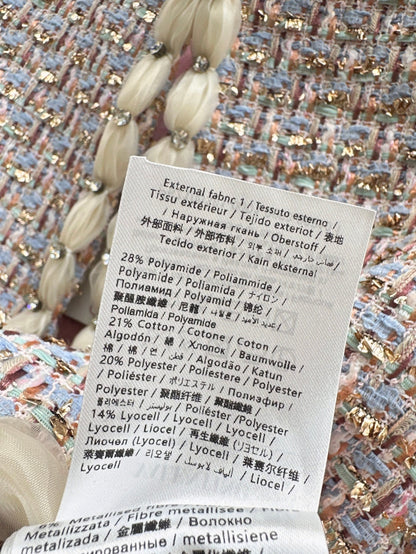 External fabric 1 / Tessuto esterno /
Tissu extérieur / Tejido exterior / 表地
/ Наружная ткань / Oberstoff /
外部面料 / 外部布料 / 외부 소재 /
Tecido exterior / Kain eksternal
28% Polyamide / Poliammide /
Polyamide / Poliamida / ナイロン /
Полиамид / Polyamid / 锦纶 /
聚醯胺纖維 / 尼龍 /
Poliamida / Polyamide
21% Cotton / Cotone / Coton /
Algodón / 綿 / Хлопок / Baumwolle /
棉 / 棉 / 면 / قطن / Algodão / Katun
20% Polyester / Poliestere / Polyester
/ Poliéster / ポリエステル / Полиэфир /
Polyester / 聚酯纤维 / 聚酯纖維 /
폴리에스터 / بوليستر / Poliéster/Polyester
14% Lyocell / Lyocell / Lyocell /
Lyocell / Liocel / 再生繊維 (リヨセル) /
Лиочел (Lyocell) / Lyocell / 莱赛尔纤维/
萊賽爾纖維 / 리오셀 / ألياف لايوسل / Liocel /
Lyocell
6% Metallised fibre
Metallizzata / Fibre métallisée / Fibra
metalizada / 金属繊維 / Волокно
металлизированные / metallisiene